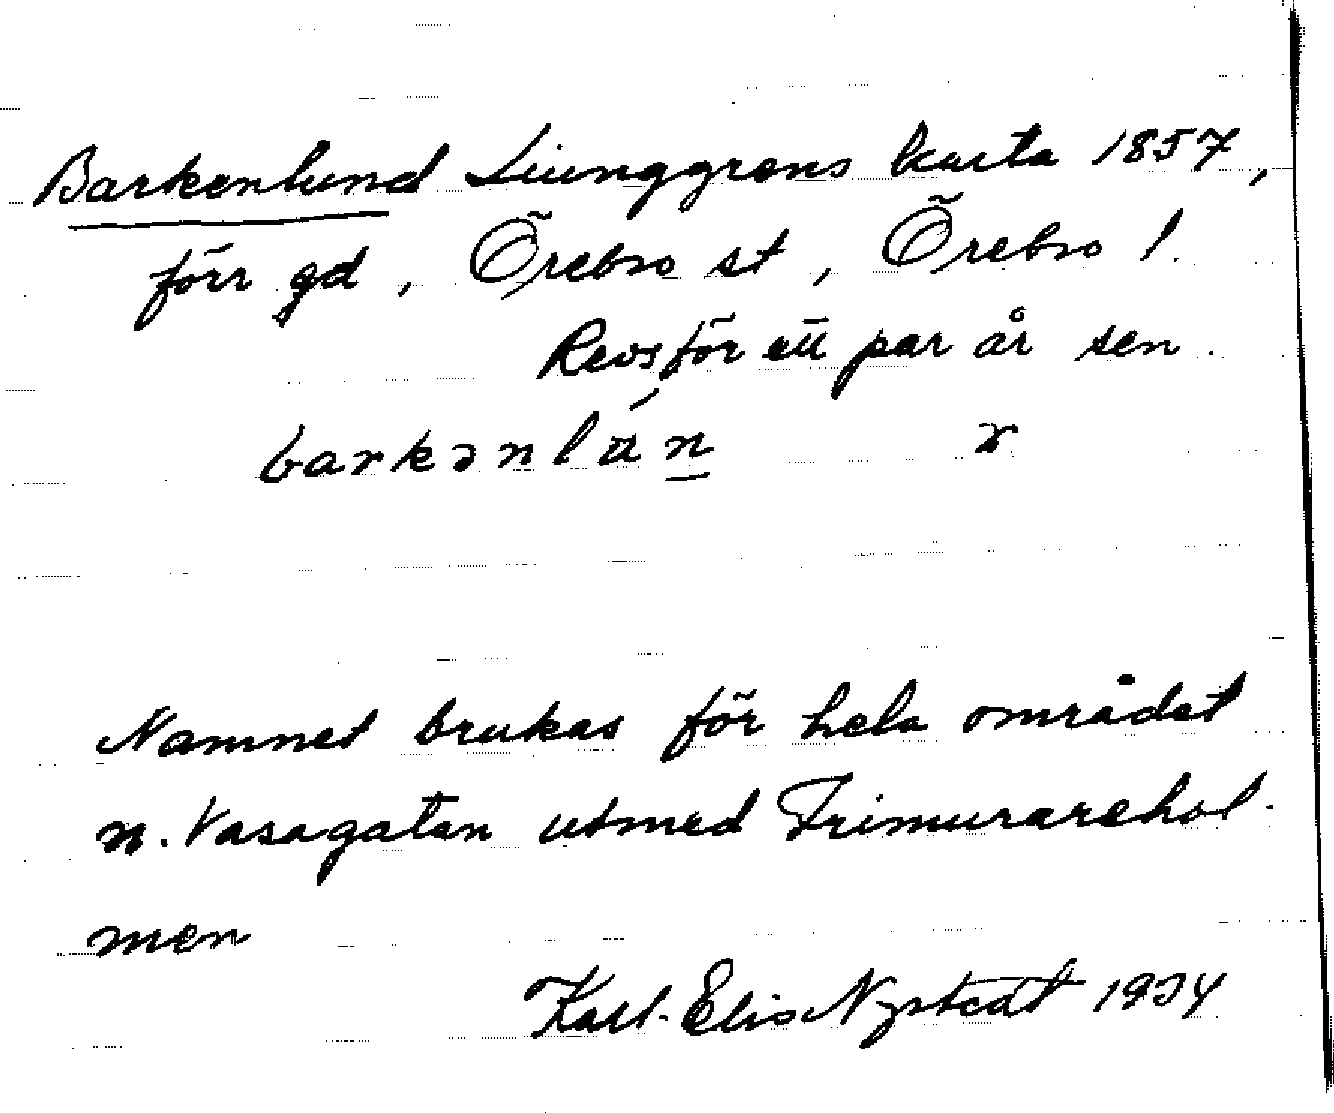 Barkenlund Ljunggrens karta 1857,
förr gd, Örebro st, Örebro l.
Revs för ett par år sen.
barkənlún
Namnet brukas för hela området
n. Vasagatan utmed Frimurarehol-
men
Karl-Elis Nystedt 1934